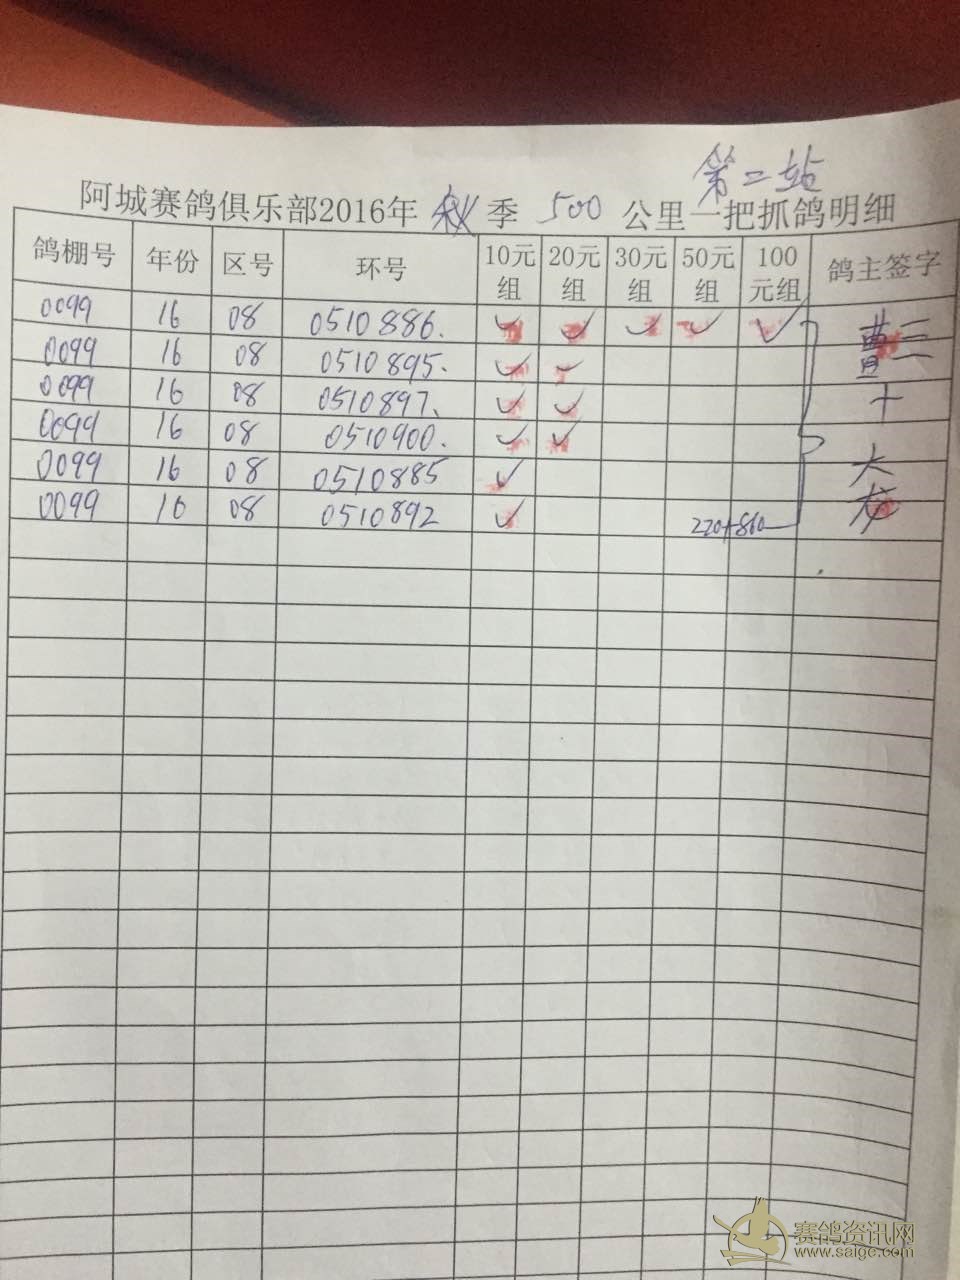 第二站
阿城赛鸽俱乐部2016年 秋 季 500 公里一把抓鸽明细
鸽棚号 年份 区号 环号 10元组 20元组 30元组 50元组 100元组 鸽主签字
0099 16 08 0510886. ✓ ✓ ✓ ✓ ✓ 曹三
0099 16 08 0510895. ✓ ✓
0099 16 08 0510897. ✓ ✓ 十
0099 16 08 0510900. ✓ ✓
0099 16 08 0510885 ✓ 大
0099 16 08 0510892 ✓ 220+860 龙
赛鸽资讯网
www.saige.com